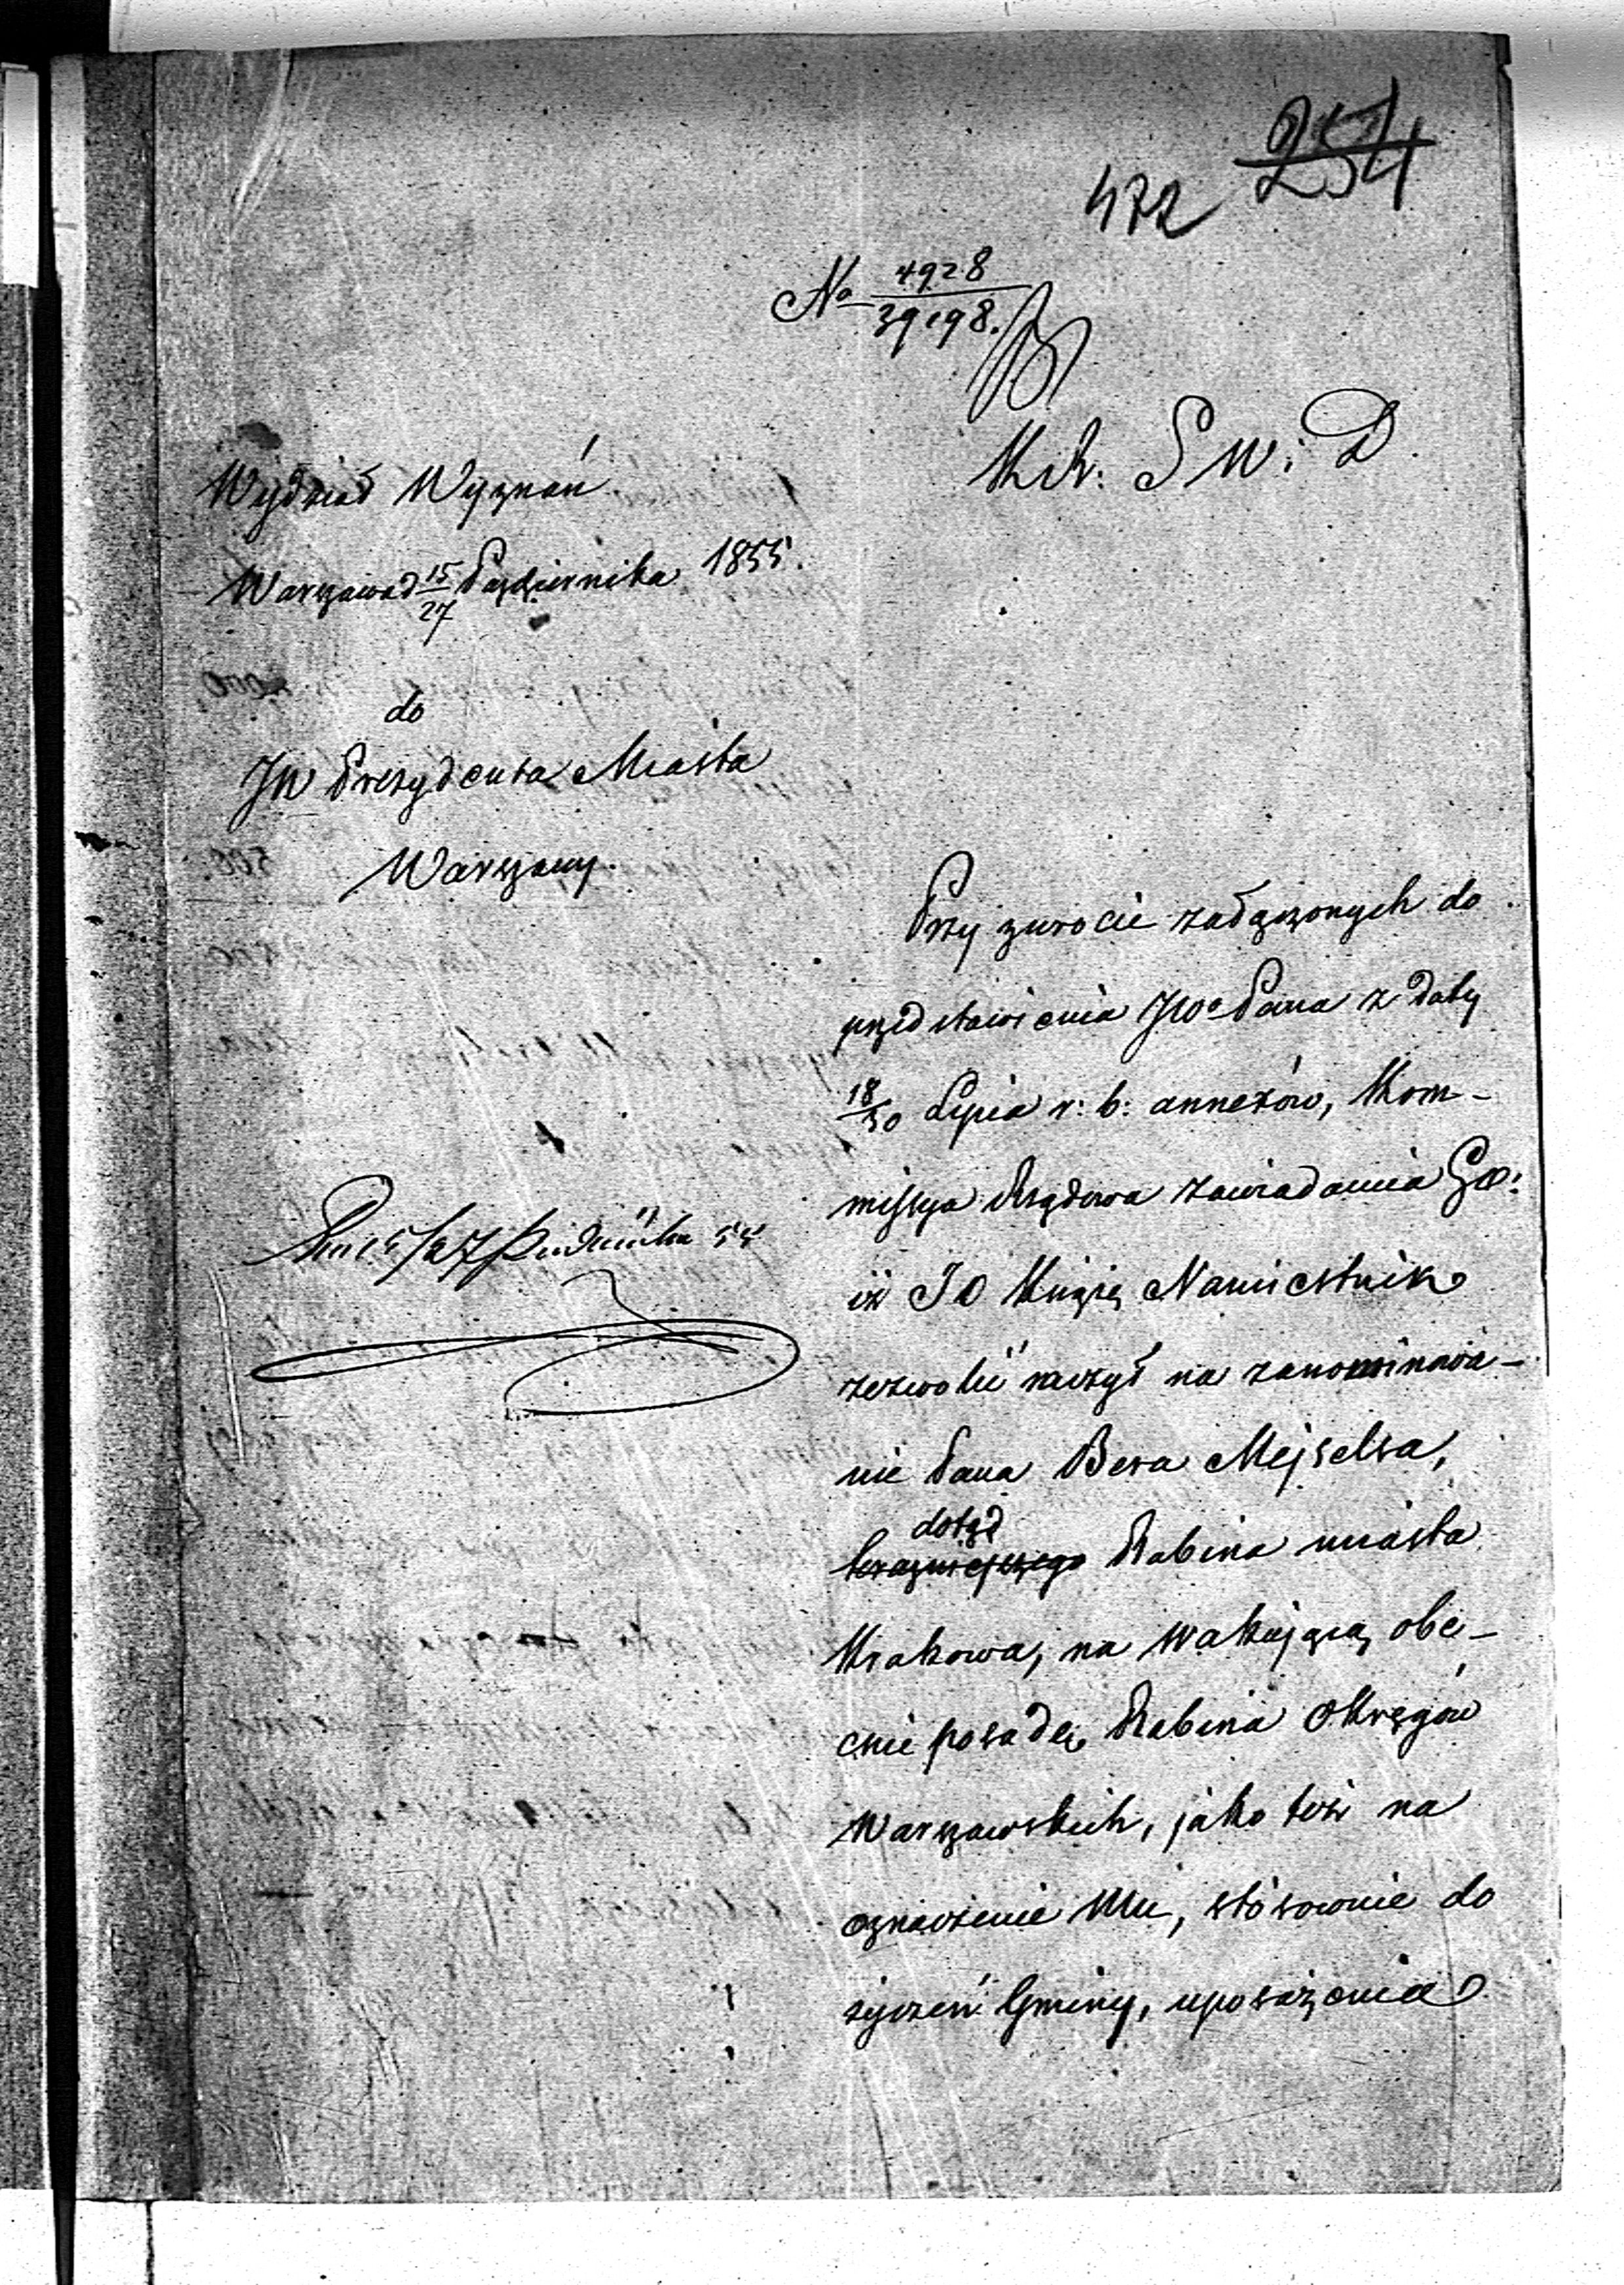 254
472
No 4928
39198.
K.R. S W i D.
Wydział Wyznań
Warszawa d 15/27 Października 1855.
do
JW Prezydenta Miasta
Warszawy.
Przy zwrocie załączonych do
przedstawienia JWo Pana z daty
18/30 Lipca r: b: annexów, Kom-
missya Rządowa zawiadamia Go:
iż JO Książę Namiestnik
zezwolić raczył na zanominowa-
nie Pana Bera Mejselsa,
dotąd
teraźniejszego Rabina miasta
Krakowa, na wakującą obe-
cnie posadę Rabina Okręgów
Warszawskich, jako też na
oznaczenie Mu, stósownie do
życzeń Gminy, uposażenia
15/27 Października 55